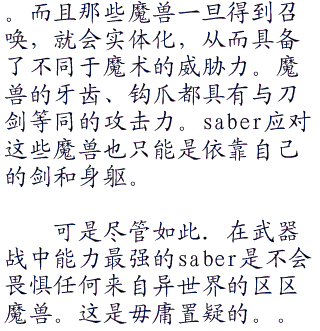 。而且那些魔兽一旦得到召
唤，就会实体化，从而具备
了不同于魔术的威胁力。魔
兽的牙齿、钩爪都具有与刀
剑等同的攻击力。saber应对
这些魔兽也只能是依靠自己
的剑和身躯。
可是尽管如此．在武器
战中能力最强的saber是不会
畏惧任何来自异世界的区区
魔兽。这是毋庸置疑的。。